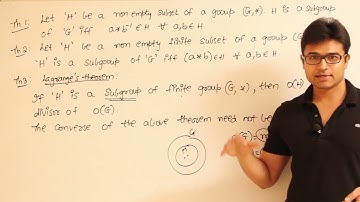 Th 1: Let 'H' be a non empty subset of a group (G,*). H is a subgroup
of 'G' iff a*b⁻¹ ∈ H ∀ a,b ∈ H.
Th 2: Let 'H' be a non empty finite subset of a group (G
'H' is a Subgroup of 'G' iff (a*b) ∈ H ∀ a,b ∈ H.
Th 3: Lagrange's theorem:
If 'H' is a Subgroup of finite group (G,*), then O(H)
divisor of O(G).
The converse of the above theorem need not be
G
H